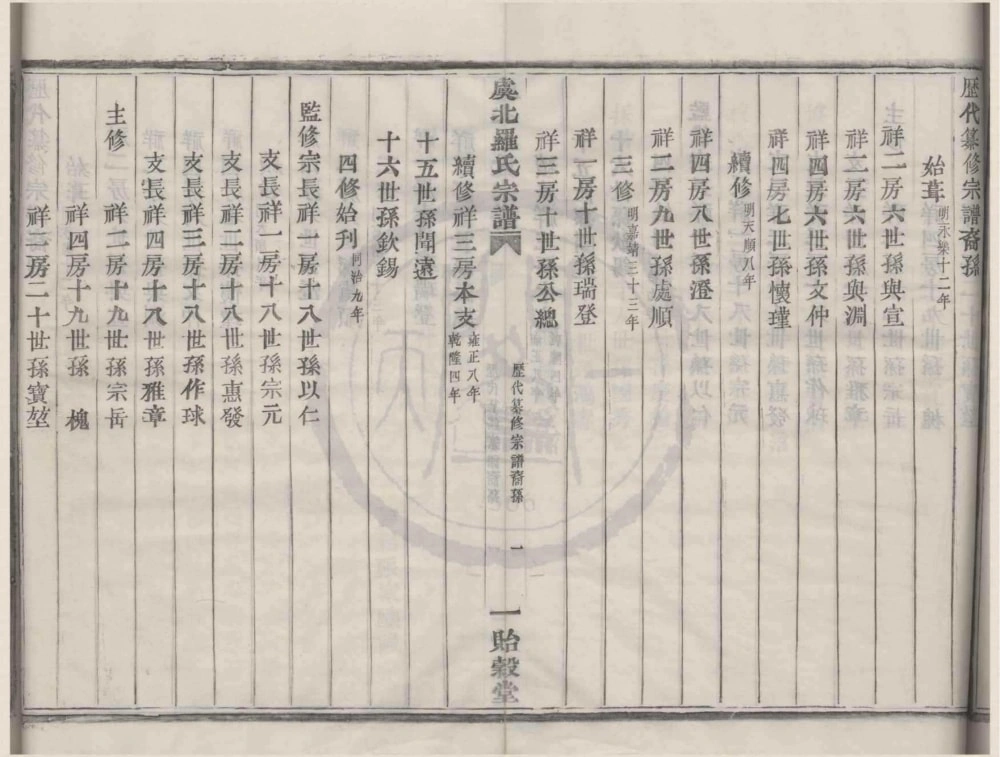 歷代纂修宗譜裔孫
始葺 明永樂十二年
祥二房六世孫與宣
祥二房六世孫與淵
祥四房六世孫文仲
祥四房七世孫懷瑾
續修 明天順八年
祥四房八世孫澄
祥二房九世孫處順
三修 明嘉靖三十三年
祥一房十世孫瑞登
祥三房十世孫公總
虞北羅氏宗譜
歷代纂修宗譜裔孫
一
一
貽穀堂
續修祥三房本支 雍正八年
乾隆四年
十五世孫聞遠
十六世孫欽錫
四修始刋 同治九年
監修宗長祥一房十八世孫以仁
支長祥一房十八世孫宗元
支長祥二房十八世孫惠發
支長祥三房十八世孫作球
支長祥四房十八世孫雅章
主修 祥二房十九世孫宗岳
祥四房十九世孫 槐
祥三房二十世孫寶堃